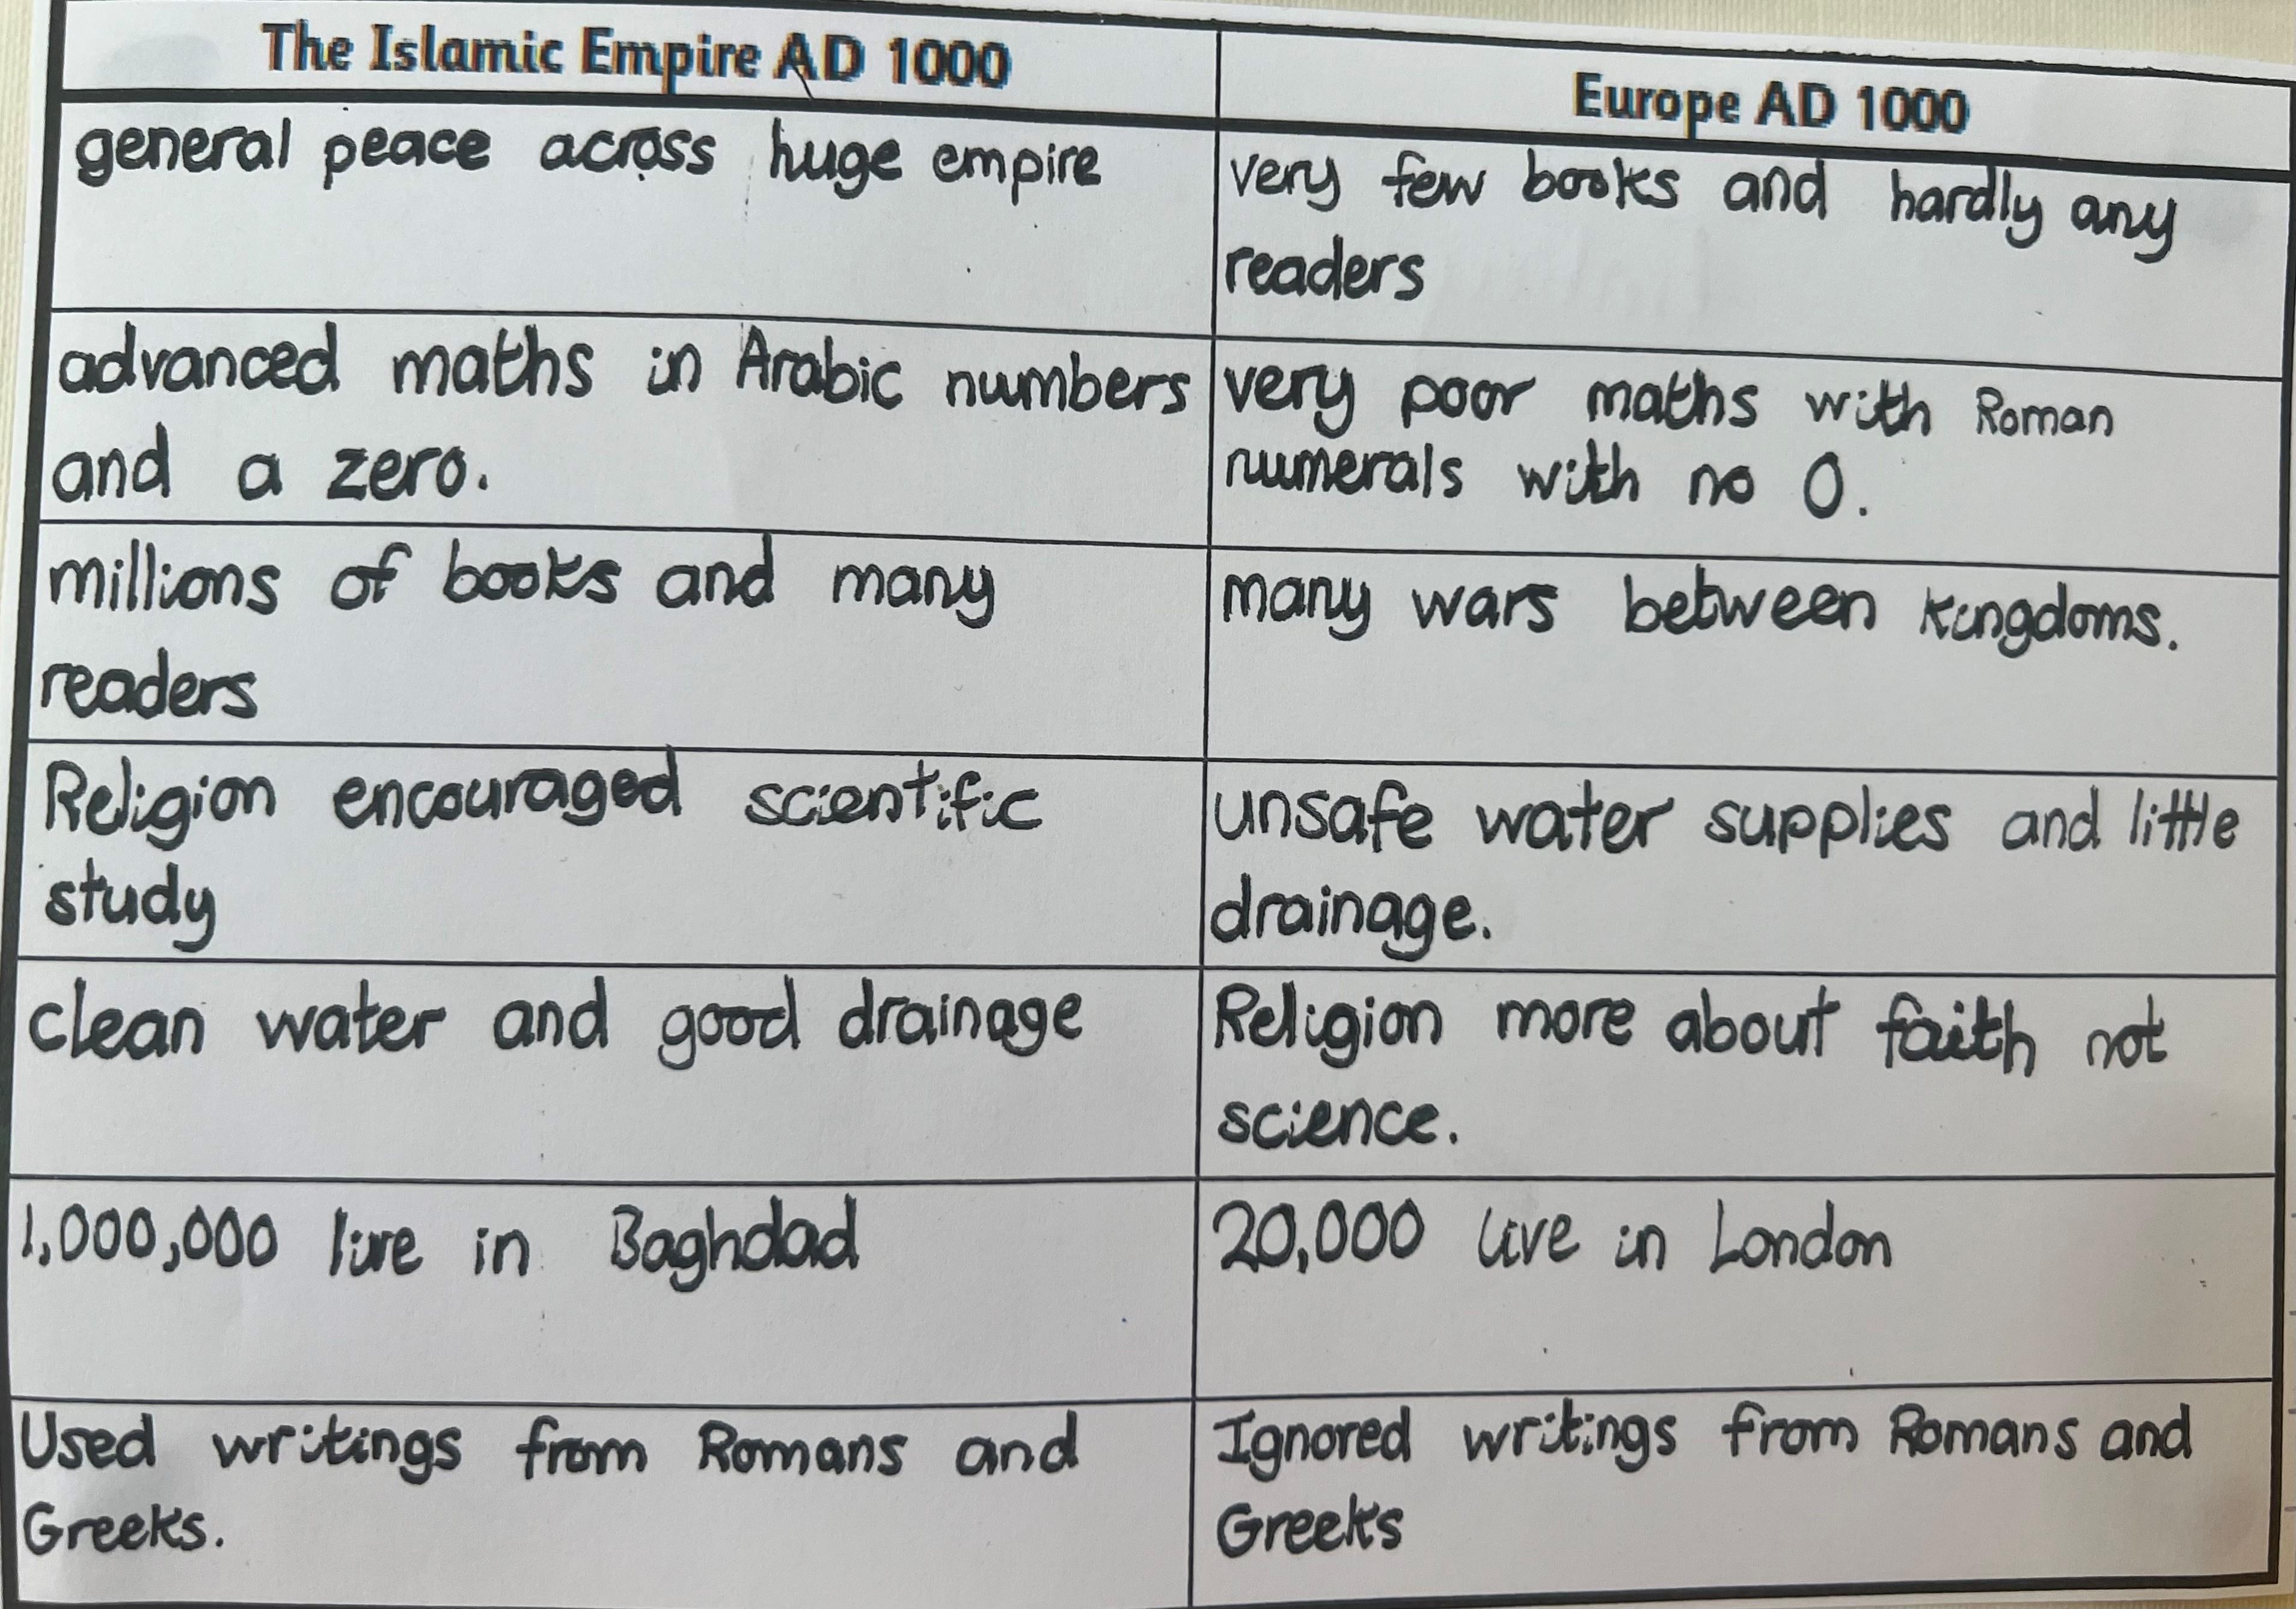 The Islamic Empire AD 1000
Europe AD 1000
general peace across huge empire
very few books and hardly any
readers
advanced maths in Arabic numbers
and a zero.
very poor maths with Roman
numerals with no 0.
millions of books and many
readers
many wars between kingdoms.
Religion encouraged scientific
study
unsafe water supplies and little
drainage.
clean water and good drainage
Religion more about faith not
science.
1,000,000 live in Baghdad
20,000 live in London
Used writings from Romans and
Greeks.
Ignored writings from Romans and
Greeks